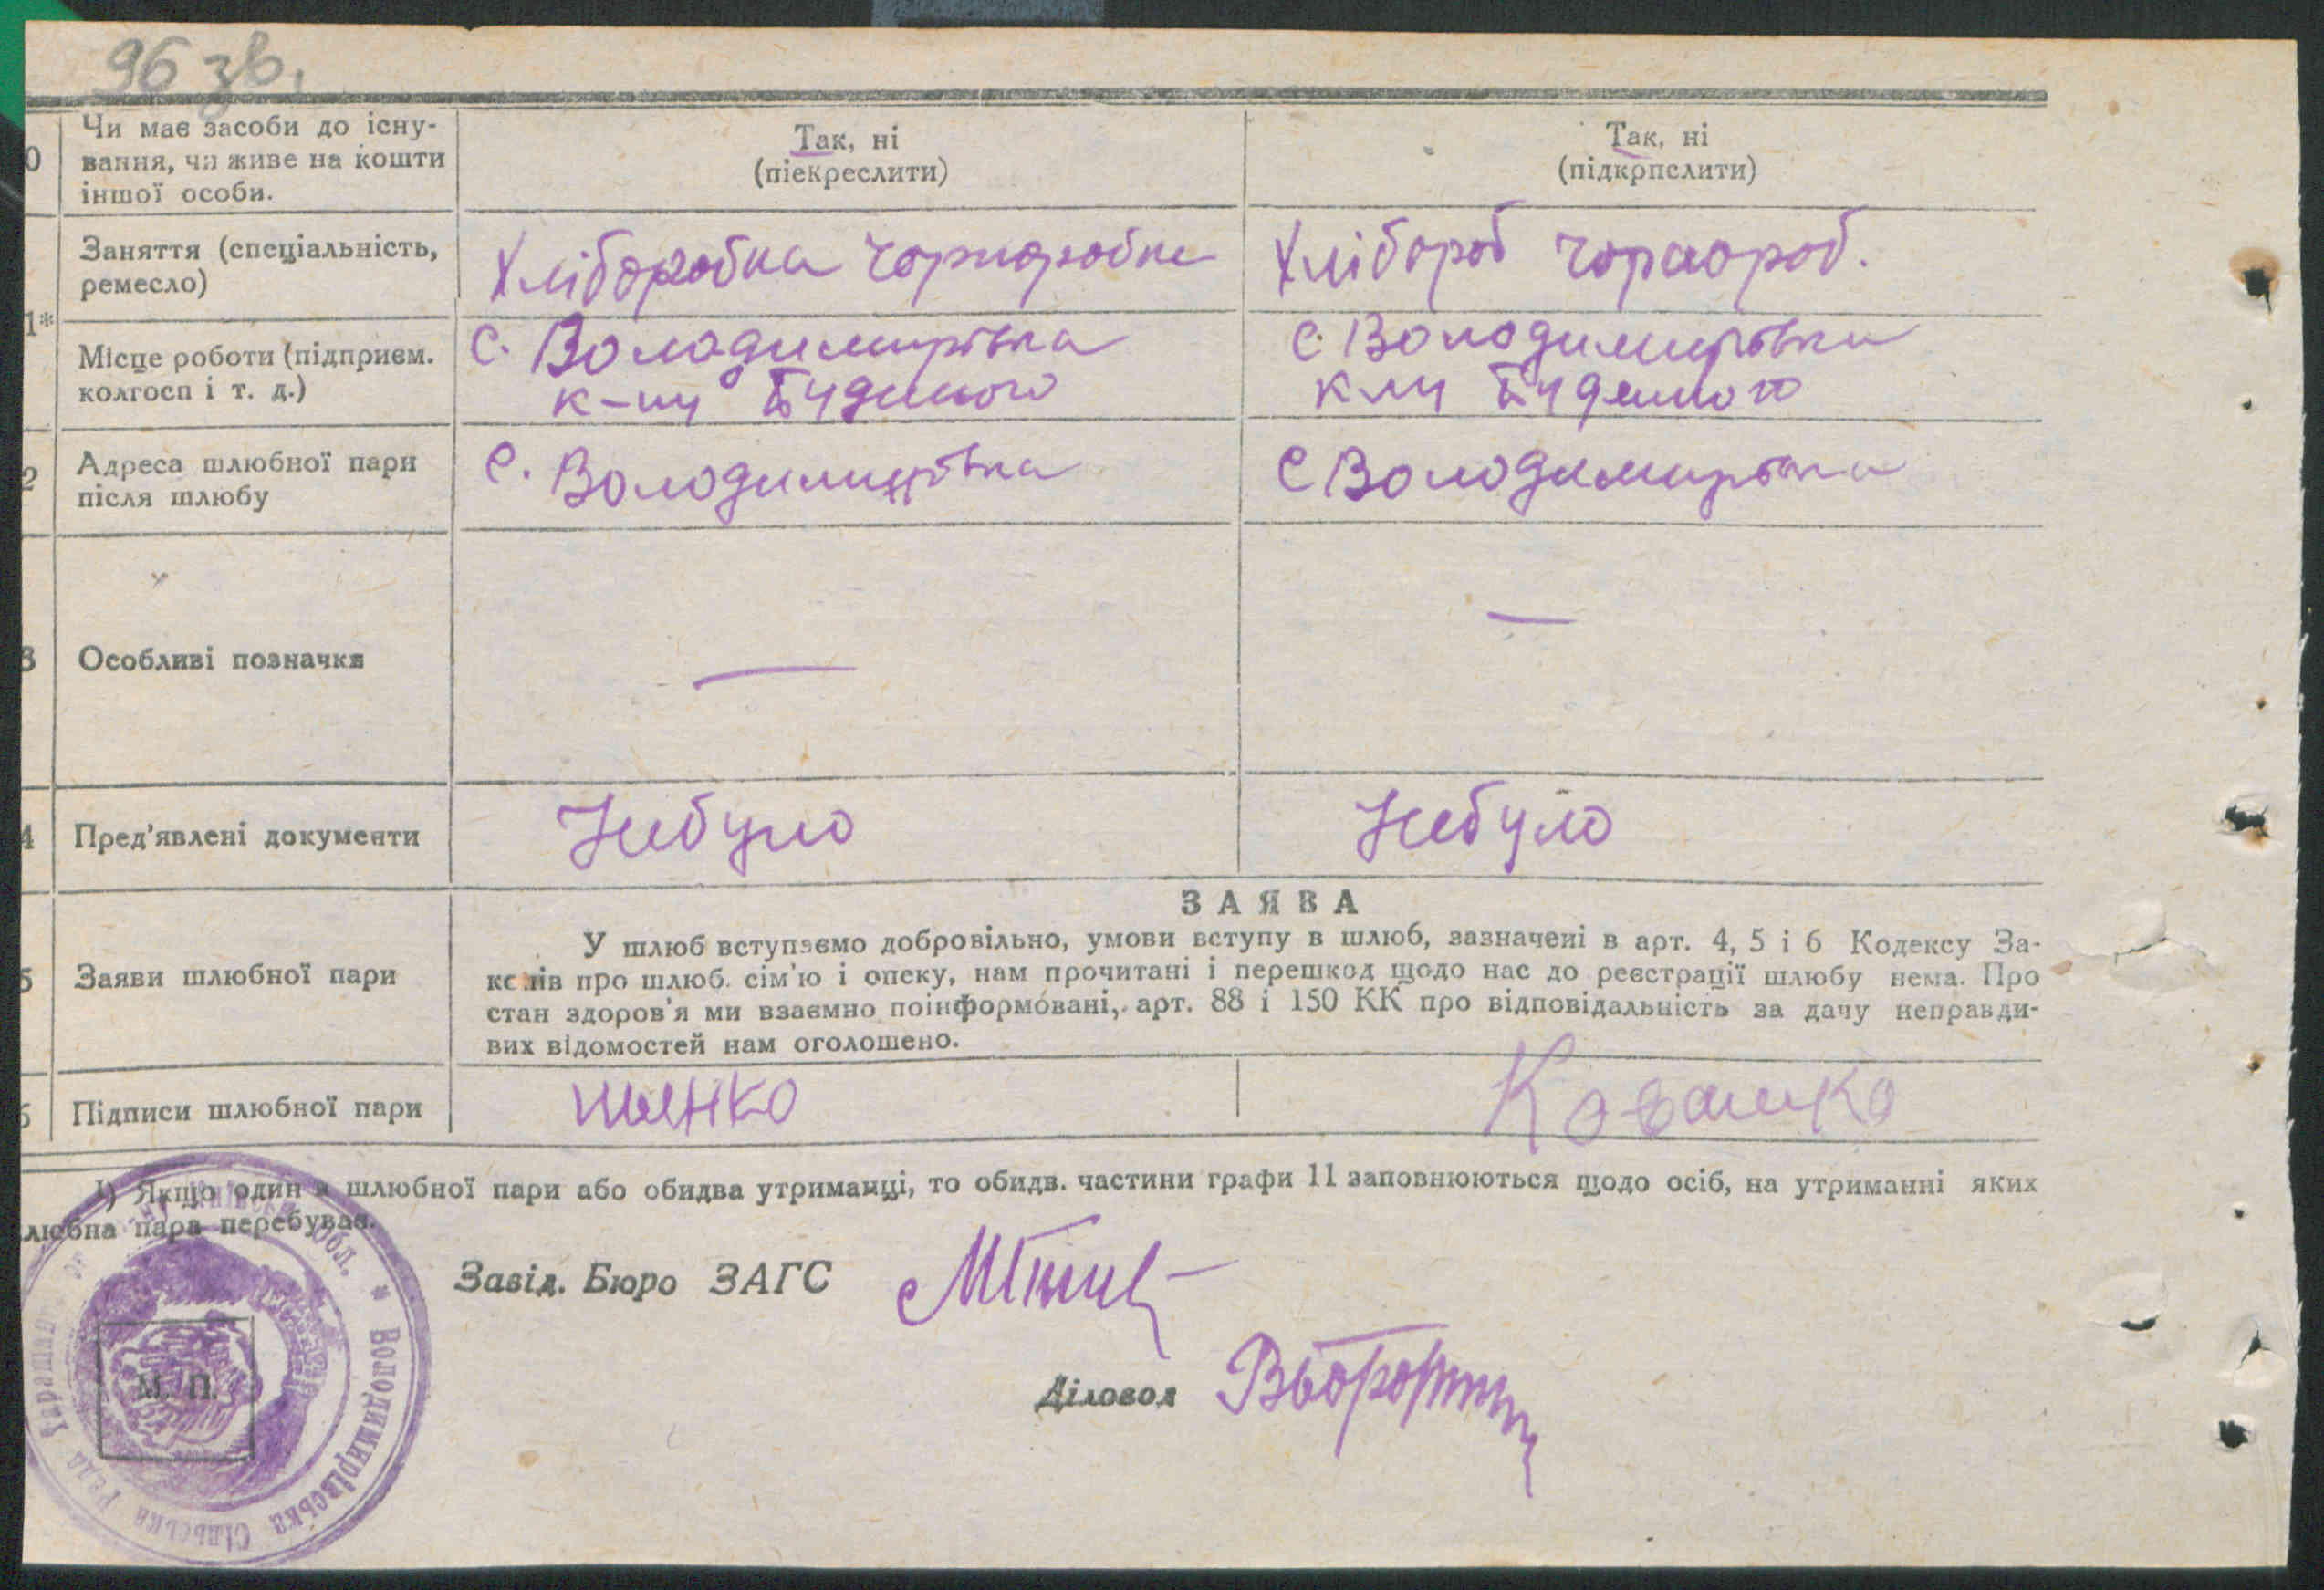 96 зв.
0 Чи має засоби до існу-
вання, чи живе на кошти
іншої особи.
Так, ні
(піекреслити)
Так, ні
(підкрпслити)
1* Заняття (спеціальність,
ремесло)
Хліборобка чорноробка
Хлібороб чорнороб.
Місце роботи (підприєм.
колгосп і т. д.)
с. Володимирівка
к-пу Буденого
с. Володимирівка
к-пу Буденого
2 Адреса шлюбної пари
після шлюбу
с. Володимирівка
с Володимирівка
3 Особливі позначки
—
—
4 Пред'явлені документи
Небуло
Небуло
ЗАЯВА
5 Заяви шлюбної пари
У шлюб вступаємо добровільно, умови вступу в шлюб, зазначені в арт. 4, 5 і 6 Кодексу За-
конів про шлюб. сім'ю і опеку, нам прочитані і перешкод щодо нас до реєстрації шлюбу нема. Про
стан здоров'я ми взаємно поінформовані, арт. 88 і 150 КК про відповідальність за дачу неправди-
вих відомостей нам оголошено.
6 Підписи шлюбної пари
Коваленко
1) Якщо один з шлюбної пари або обидва утриманці, то обидв. частини графи 11 заповнюються щодо осіб, на утриманні яких
любна пара перебуває.
Завід. Бюро ЗАГС
Діловод
М. П.
Володимирівська Сільська Рада
обл.